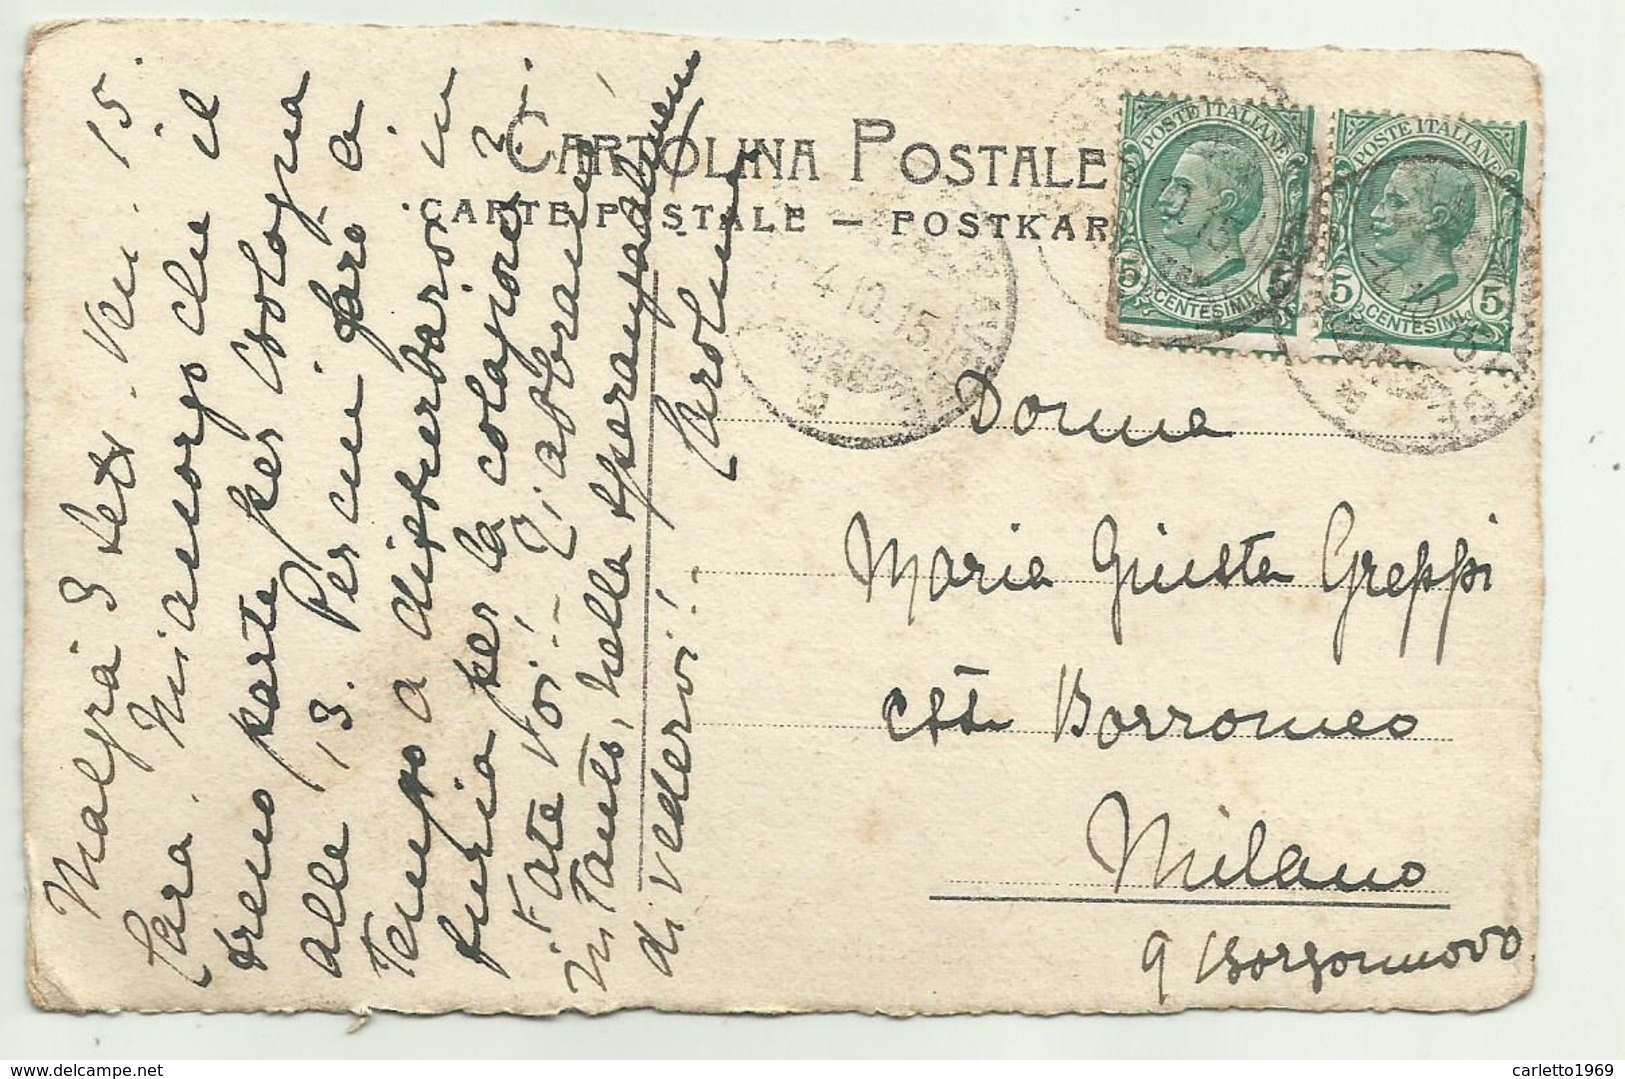 CARTOLINA POSTALE
CARTE POSTALE — POSTKAR
POSTE ITALIANE
5 CENTESIMI 5
POSTE ITALIANE
5 CENTESIMI 5
4.10.15
Malgrà 3 Ven. 15.
Cara. Mi accorgo che il
treno parte per Bologna
alle 13. Per cui farò a
tempo a disturbarvi in
furia per la colazione?
Fate Voi!- V'abbraccio
intanto, nella speranza
di vedervi!
Donna
Maria Giusta Greppi
Borromeo
Milano
9 Borgonuovo.
delcampe.net
carletto1969